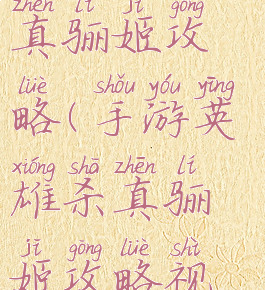 zhēn lí jī gōng
真骊姬攻
lüè shǒu yóu yīng
略(手游英
xióng shā zhēn lí
雄杀真骊
jī gōng lüè shì
姬攻略视